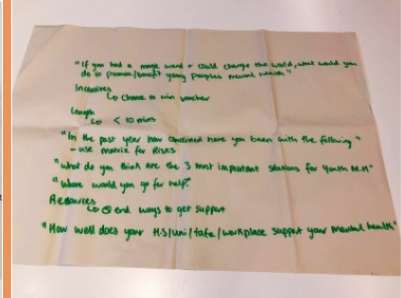 "If you had a magic wand + could change the world, what would you
do to promote/benefit young peoples mental health"
Incentives
↳ Chance to win voucher
Length
↳ < 10 mins
"In the past year how concerned have you been with the following"
- use matrix for Risks
"What do you think are the 3 most important solutions for Youth M.H"
"Where would you go for help?"
Resources
↳ @ end ways to get support
"How well does your H.S/uni/tafe/workplace support your mental health"